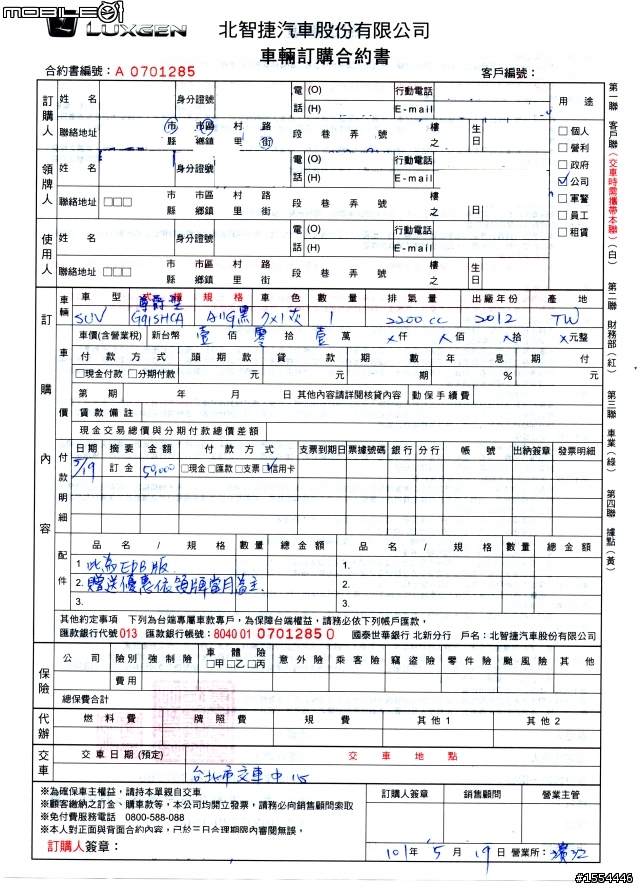 mobile01
LUXGEN
北智捷汽車股份有限公司
車輛訂購合約書
合約書編號：A 0701285
客戶編號：
訂購人
姓 名
身分證號
電話 (O) (H)
行動電話
E-mail
用 途
聯絡地址
市縣 市區鄉鎮 村里 路街 段 巷 弄 號 樓之
生日
□個人
□營利
□政府
☑公司
□軍警
□員工
□租賃
領牌人
姓 名
身分證號
電話 (O) (H)
行動電話
E-mail
聯絡地址 □□□
市縣 市區鄉鎮 村里 路街 段 巷 弄 號 樓之
日
使用人
姓 名
身分證號
電話 (O) (H)
行動電話
E-mail
聯絡地址 □□□
市縣 市區鄉鎮 村里 路街 段 巷 弄 號 樓之
生日
第一聯 客戶聯（交車時需攜帶本聯）（白）
第二聯 財務部（紅）
第三聯 車業（綠）
第四聯 據點（黃）
訂購內容
車輛
車 型 式 樣 規 格 車 色 數 量 排 氣 量 出廠年份 產 地
尊爵型
SUV G91SHCA 1 2200cc 2012 TW
車價
車價(含營業稅) 新台幣 壹 佰 零 拾 壹 萬 X仟 X佰 X拾 X元整
付 款 方 式 頭 期 款 貸 款 期 數 年 息 期 付
□現金付款 □分期付款 元 元 期 % 元
第 期 年 月 日 其他內容請詳閱核貸內容 動保手續費
貸款備註
現金交易總價與分期付款總價差額
付款明細
日期 摘要 金額 付 款 方 式 支票到期日 票據號碼 銀行 分行 帳 號 出納簽章 發票明細
5/19 訂金 50,000 □現金 □匯款 □支票 ☑信用卡
配件
品 名 / 規 格 數量 總 金 額 品 名 / 規 格 數量 總 金 額
1 此為EPB版. 1.
2. 贈送優惠依領牌當月為主. 2.
3. 3.
其他約定事項 下列為台端專屬車款專戶，為保障台端權益，請務必依下列帳戶匯款，
匯款銀行代號 013 匯款銀行帳號：8040 01 0701285 0 國泰世華銀行 北新分行 戶名：北智捷汽車股份有限公司
保險
公 司 險別 強制險 車 體 險 □甲□乙□丙 意外險 乘客險 竊盜險 零件險 颱風險 其 他
費用
總保費合計
代辦
燃料費 牌照費 規 費 其他1 其他2
交車
交車日期(預定) 交 車 地 點
台北市交車中心
※為確保車主權益，請持本單親自交車
※顧客繳納之訂金、購車款等，本公司均開立發票，請務必向銷售顧問索取
※免付費服務電話 0800-588-088
※本人對正面與背面合約內容，已於三日合理期限內審閱無誤，
訂購人簽章：
訂購人簽章 銷售顧問 營業主管
101年 5 月 19 日 營業所：濱江
#1554446